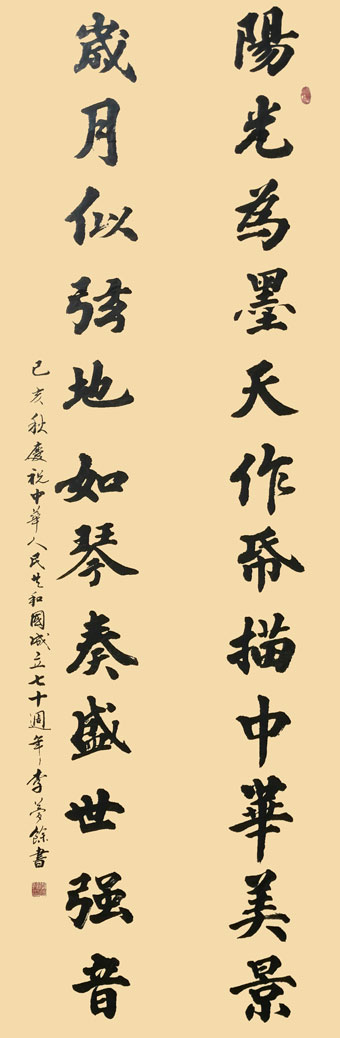 陽光為墨天作帋描中華美景
歲月似弦地如琴奏盛世强音
己亥秋慶祝中華人民共和國成立七十週年李夢餘書